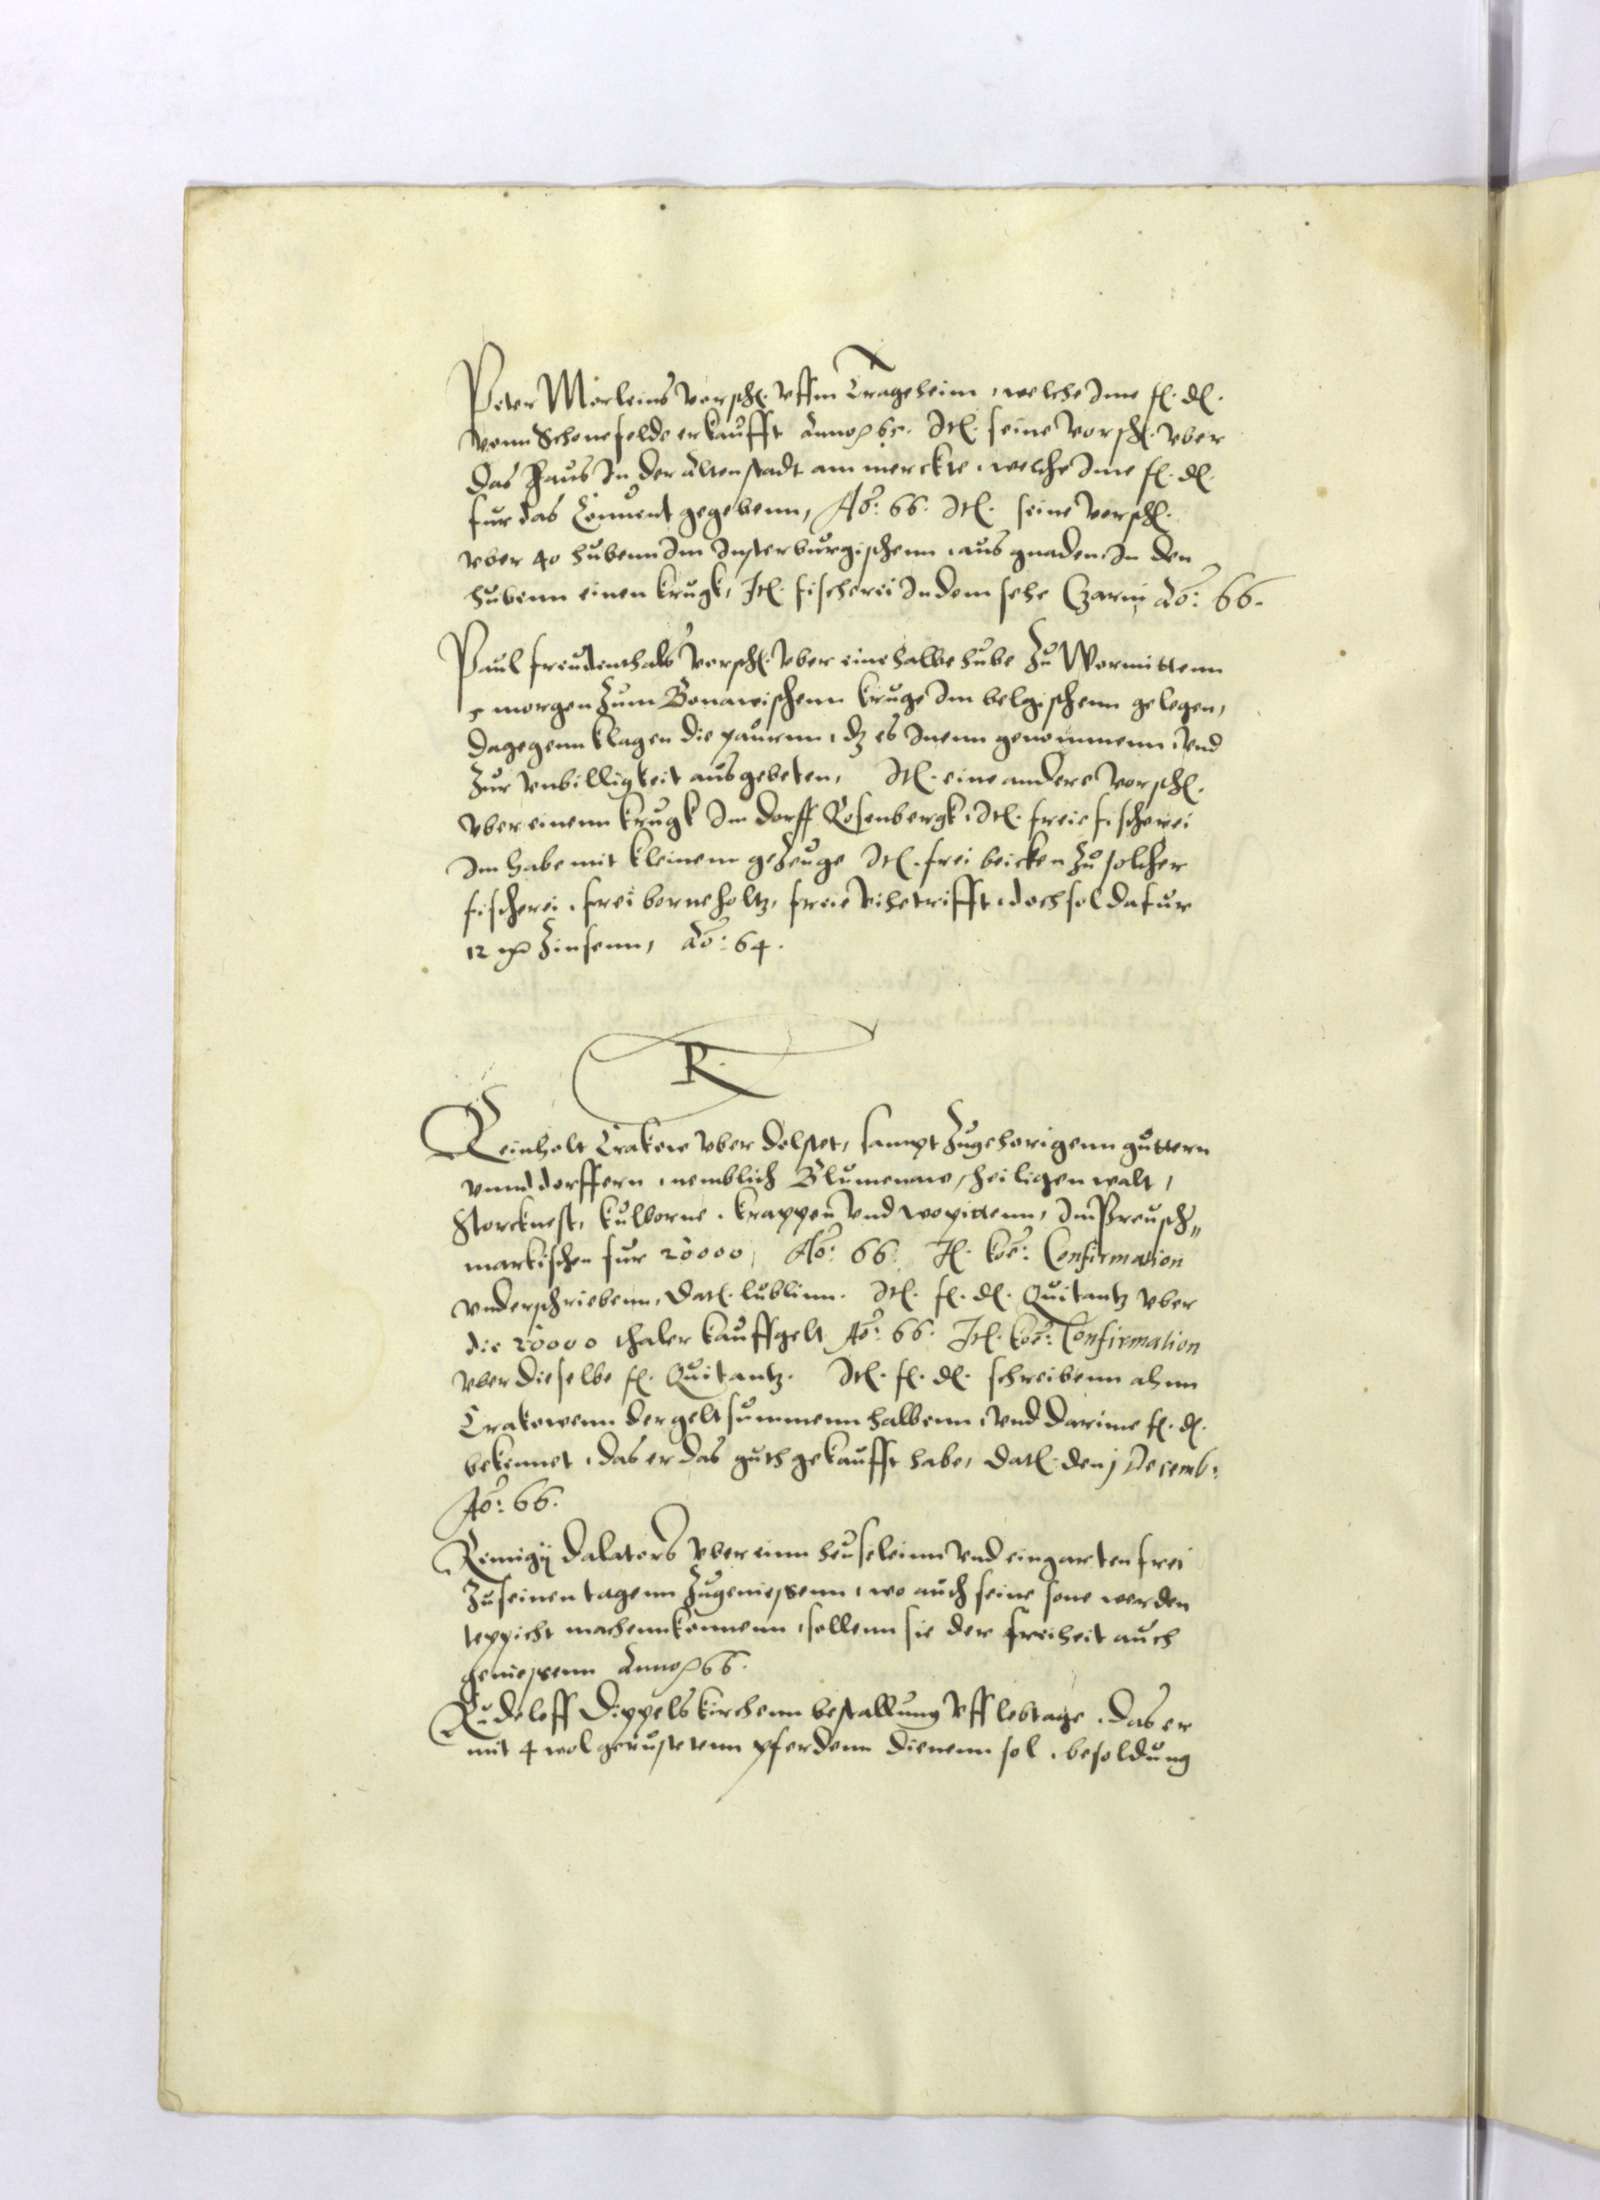 Peter Mörleins vorsch. uffm Trageheim, welche Ime f. d.
vonn Schonefelde erkaufft Anno 65. It. seine vorsch. uber
das Haus In der Altenstadt am merckte, welche Ime f. d.
fur das Conuent gegebenn, Ao: 66. It. seine versch.
uber 40 hubenn Im Insterburgischenn, aus gnaden, In den
hubenn einen krugk, It. fischerei In dem sehe Czarni Ao: 66.
Paul freudenthals vorsch. uber eine halbe hube Zu Wormittenn
5 morgen Zum Bonawischenn kruge Im belgischenn gelegen,
dagegenn klagen die paurnn, dz es Inenn genommenn, und
Zur unbilligkeit ausgebeten, It. eine andere vorsch.
uber einenn krugk Im dorff Rosenbergk, It. freie fischerei
Im habe mit kleinem geZeuge It. frei beicken Zu solcher
fischerei, frei borneholtz, freie vihetrifft, doch sol dafur
12 mr Zinsenn, Ao: 64.
R.
Reinholt Crakow uber dolstet, sampt Zugehorigenn guttern
unnd dorffern, nemblich Blumenaw, heiligen walt,
Storcknest, kulborne, krappen und wopittenn, Im Preusch„
markischen fur 20000, Ao: 66. It. koe: Confirmation
underschriebenn, Dat. lublinn. It. f. d. Quitantz uber
die 20000 thaler kauffgelt Ao: 66. It. koe: Confirmation
uber dieselbe f. Quitantz. It. f. d. schreibenn ahnn
Crakowenn der gelt summenn halbenn, und darinne f. d.
bekennet, das er das guth gekaufft habe, Dat. den j Decemb:
Ao: 66.
Remigij dalators uber einn heuseleinn und ein garten frei
Zu seinen tagenn Zugeniessenn, wo auch seine sone werden
teppicht machenn konnenn, sollenn sie der freiheit auch
geniessenn Anno 66.
Rudeloff Dippelskirchenn bestallung uff lebtage, das er
mit 4 wol gerustetenn pferdenn dienenn sol, besoldung